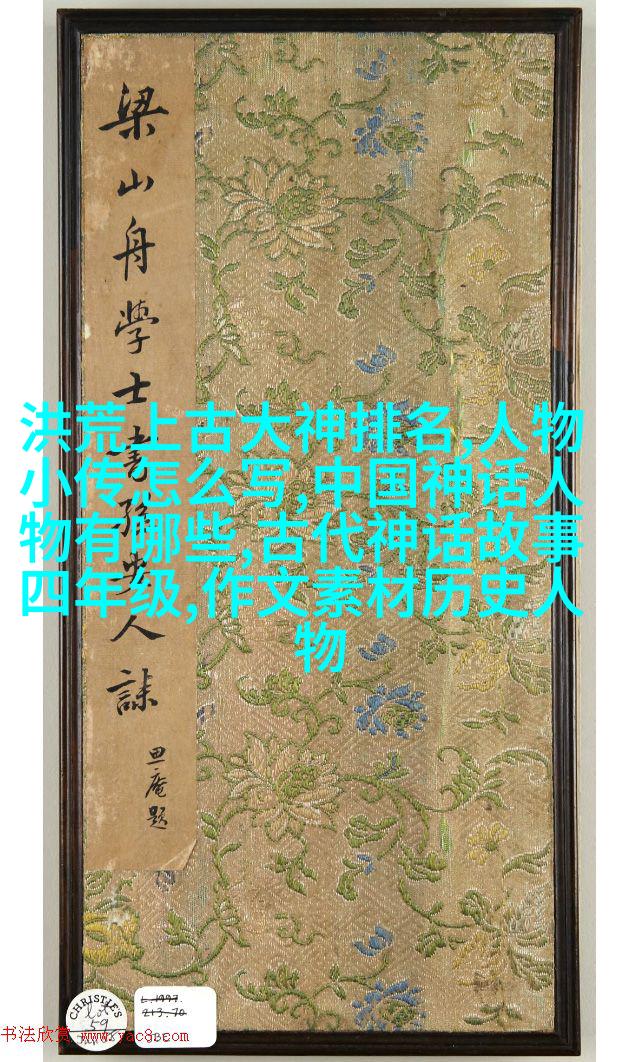 梁山舟學士書孫安人誄
庵題
洪荒上古大神排名,人物
小传怎么写,中国神话人
物有哪些,古代神话故事
四年级,作文素材历史人
物
CHRISTIE'S
Lot
59
L.1997.
213.70
书法欣赏 www.yac8.com